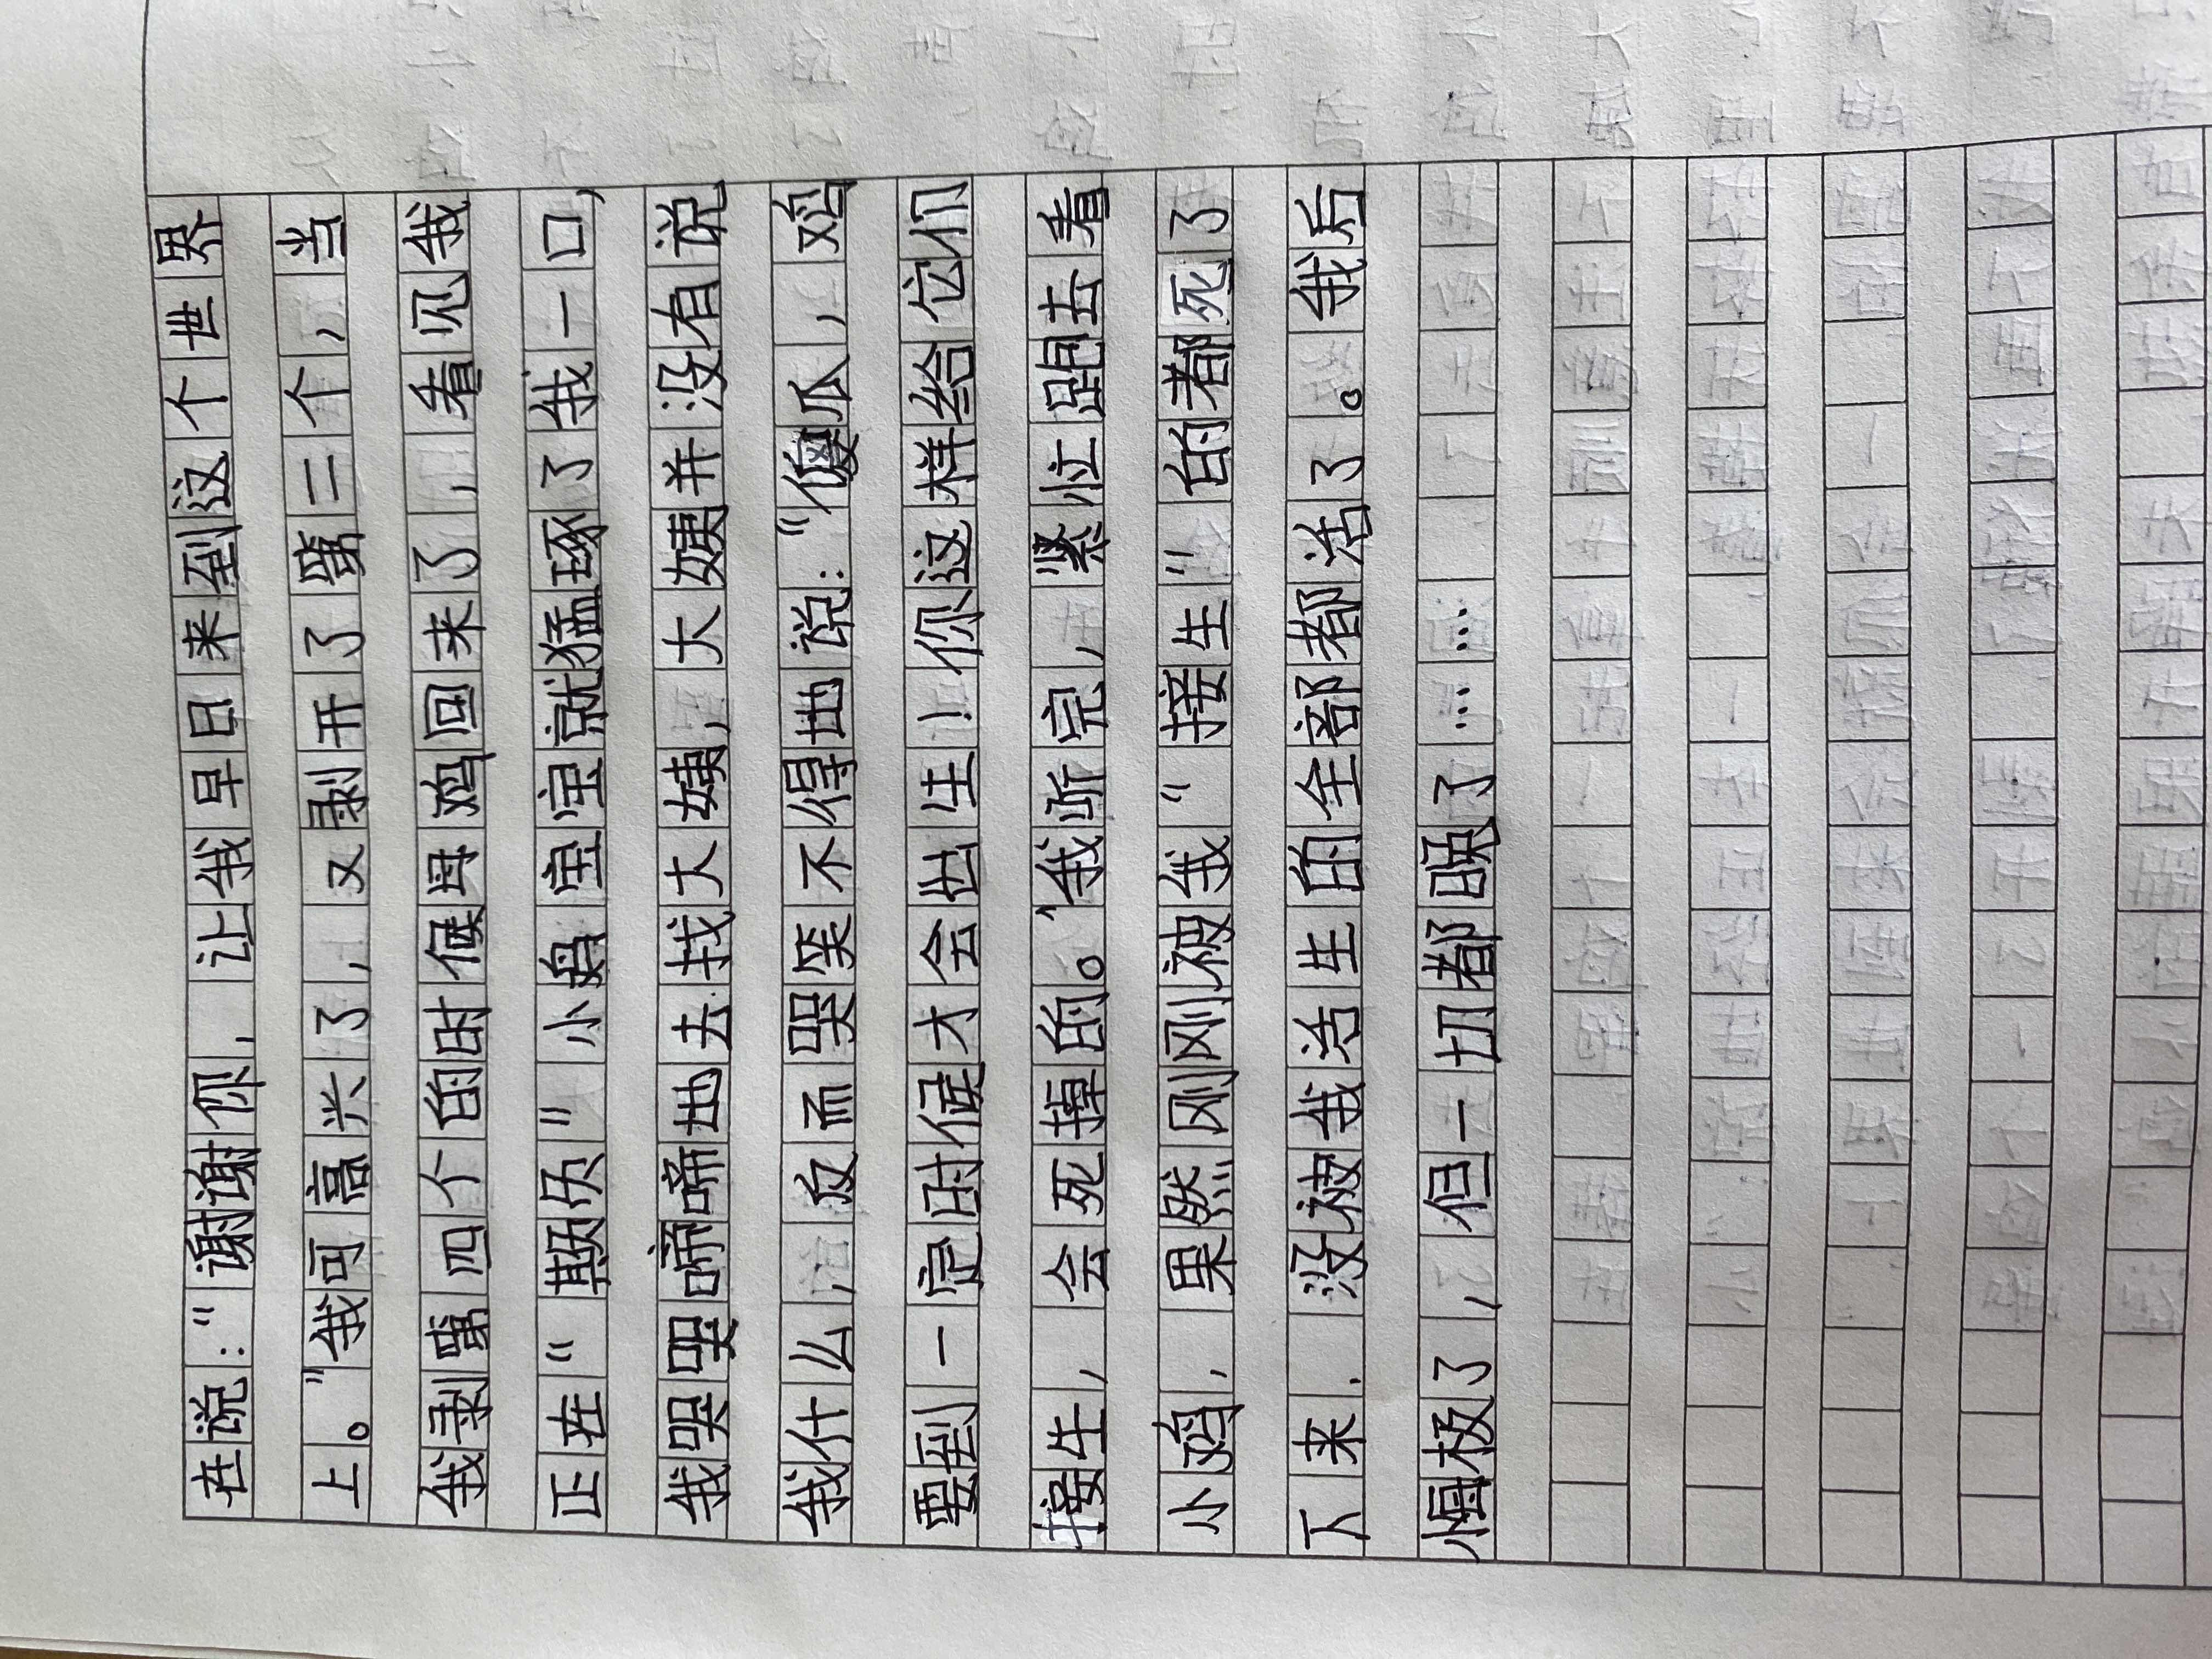 在说：“谢谢你，让我早日来到这个世界
上。”我可高兴了，又剥开了第三个，当
我剥第四个的时候母鸡回来了，看见我
正在“欺负”小鸡宝宝就猛琢了我一口，
我哭哭啼啼出去找大姨，大姨并没有说
我什么，反而哭笑不得出说：“傻瓜，鸡
要到一定时候才会出生！你这样给它们
接生，会死掉的。”我听完，紧忙跑去看
小鸡，果然刚刚被我“接生”的都死了
下来，没被我活生的全部都活了。我后
悔极了，但一切都晚了……